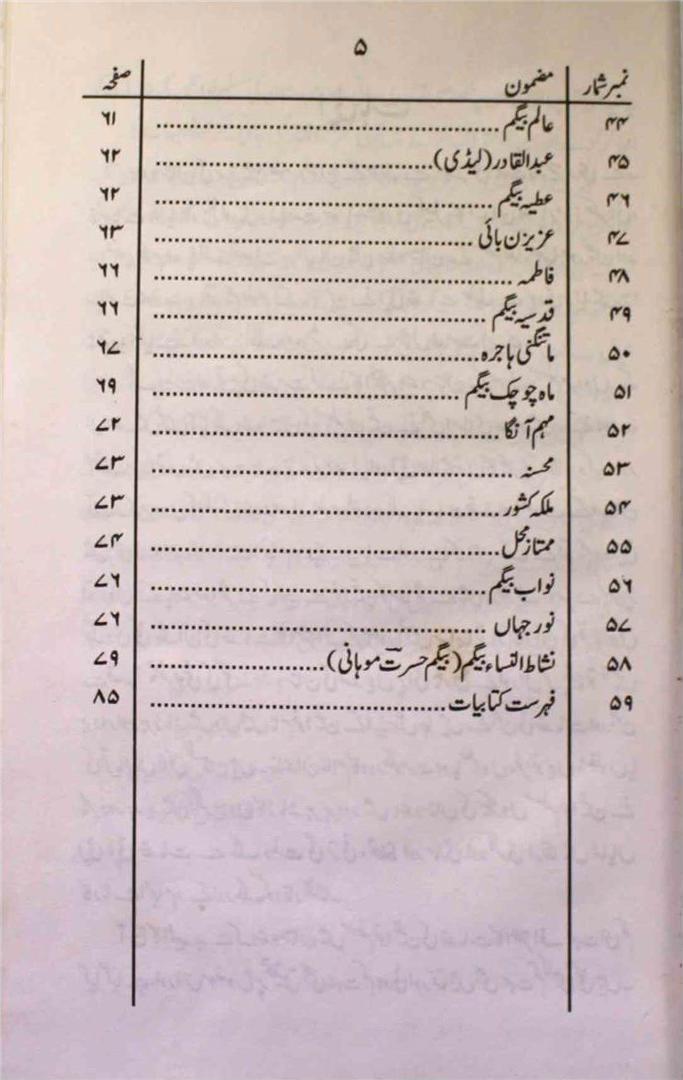 ۵
نمبر شمار مضمون صفحہ
۴۴ عالم بیگم ........................................ ۶۱
۴۵ عبدالقادر (لیڈی) ........................................ ۶۲
۴۶ عطیہ بیگم ........................................ ۶۲
۴۷ عزیزن بائی ........................................ ۶۳
۴۸ فاطمہ ........................................ ۶۶
۴۹ قدسیہ بیگم ........................................ ۶۶
۵۰ ماتنگنی ہاجرہ ........................................ ۶۷
۵۱ ماہ چوچک بیگم ........................................ ۶۹
۵۲ مہم آنگا ........................................ ۷۲
۵۳ محسنہ ........................................ ۷۳
۵۴ ملکہ کشور ........................................ ۷۳
۵۵ ممتاز محل ........................................ ۷۴
۵۶ نواب بیگم ........................................ ۷۶
۵۷ نور جہاں ........................................ ۷۶
۵۸ نشاط النساء بیگم (بیگم حسرتؔ موہانی) ........................................ ۷۹
۵۹ فہرست کتابیات ........................................ ۸۵